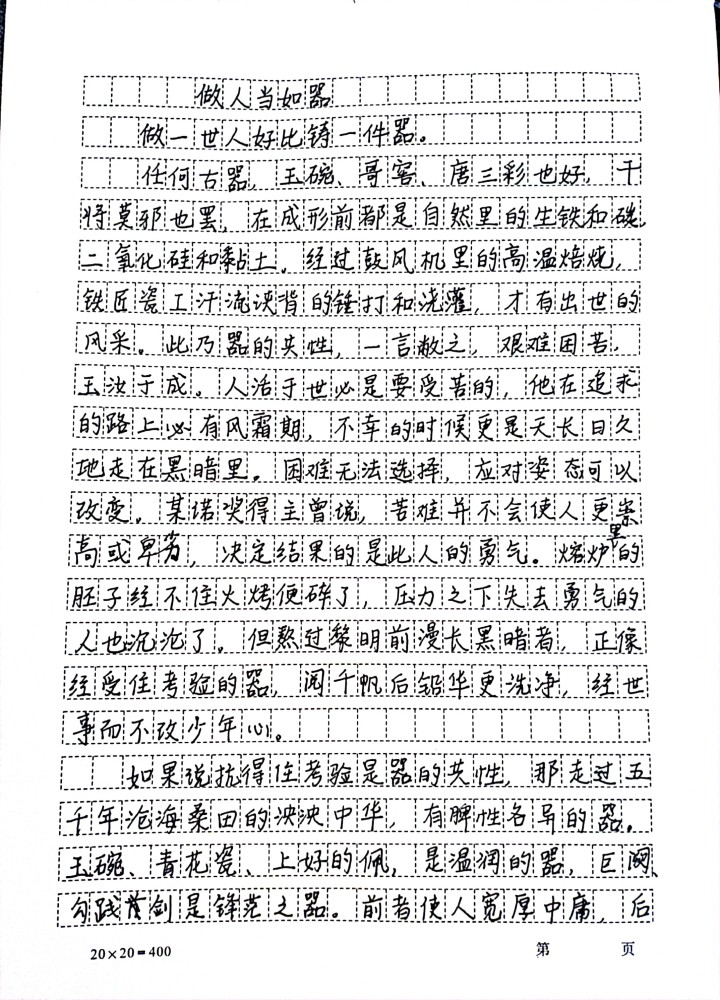 做人当如器
做一世人好比铸一件器。
任何古器，玉碗、哥窑、唐三彩也好，干
将莫邪也罢，在成形前都是自然里的生铁和碳，
二氧化硅和黏土。经过鼓风机里的高温焙烧，
铁匠瓷工汗流浃背的锤打和浇灌，才有出世的
风采。此乃器的共性，一言敝之，艰难困苦，
玉汝于成。人活于世必是要受苦的，他在追求
的路上必有风霜期，不幸的时候更是天长日久
地走在黑暗里。困难无法选择，应对姿态可以
改变。某诺奖得主曾说，苦难并不会使人更崇
高或卑劣，决定结果的是此人的勇气。熔炉里的
胚子经不住火烤便碎了，压力之下失去勇气的
人也沉沦了。但熬过黎明前漫长黑暗者，正像
经受住考验的器，阅千帆后铅华更洗净，经世
事而不改少年心。
如果说抗得住考验是器的共性，那走过五
千年沧海桑田的泱泱中华，有脾性各异的器。
玉碗、青花瓷、上好的佩，是温润的器，巨阙、
勾践剑是锋芒之器。前者使人宽厚中庸，后
20×20=400
第 页